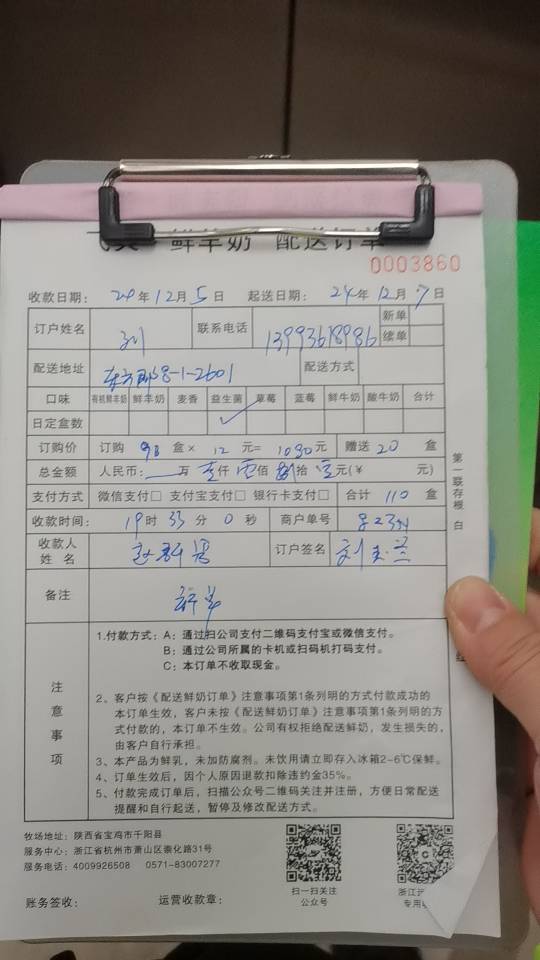 鲜羊奶 配送订单
0003860
收款日期: 24年12月5日 起送日期: 24年12月7日
订户姓名 刘 联系电话 13993618986 新单
续单
配送地址 8-1-2601 配送方式
口味 有机鲜羊奶 鲜羊奶 麦香 益生菌 草莓 蓝莓 鲜牛奶 酸牛奶 合计
日定盒数 ✓
订购价 订购 90 盒× 12 元= 1080元 赠送 20 盒
总金额 人民币: 万 壹仟 零佰 捌拾 零元(¥ 元)
支付方式 微信支付□ 支付宝支付□ 银行卡支付□ 合计 110 盒
收款时间: 19时 33分 0秒 商户单号
收款人姓名 订户签名 刘
备注
第一联存根 白
注意事项
1.付款方式: A: 通过扫公司支付二维码支付宝或微信支付。
B: 通过公司所属的卡机或扫码机打码支付。
C: 本订单不收取现金。
2、客户按《配送鲜奶订单》注意事项第1条列明的方式付款成功的
本订单生效,客户未按《配送鲜奶订单》注意事项第1条列明的方
式付款的,本订单不生效。公司有权拒绝配送鲜奶,发生损失的,
由客户自行承担。
3、本产品为鲜乳,未加防腐剂。未饮用请立即存入冰箱2-6℃保鲜。
4、订单生效后,因个人原因退款扣除违约金35%。
5、付款完成订单后,扫描公众号二维码关注并注册,方便日常配送
提醒和自行起送,暂停及修改配送方式。
牧场地址: 陕西省宝鸡市千阳县
服务中心: 浙江省杭州市萧山区崇化路31号
服务电话: 4009926508 0571-83007277
扫一扫关注
公众号
浙江
专用
账务签收: 运营收款章: